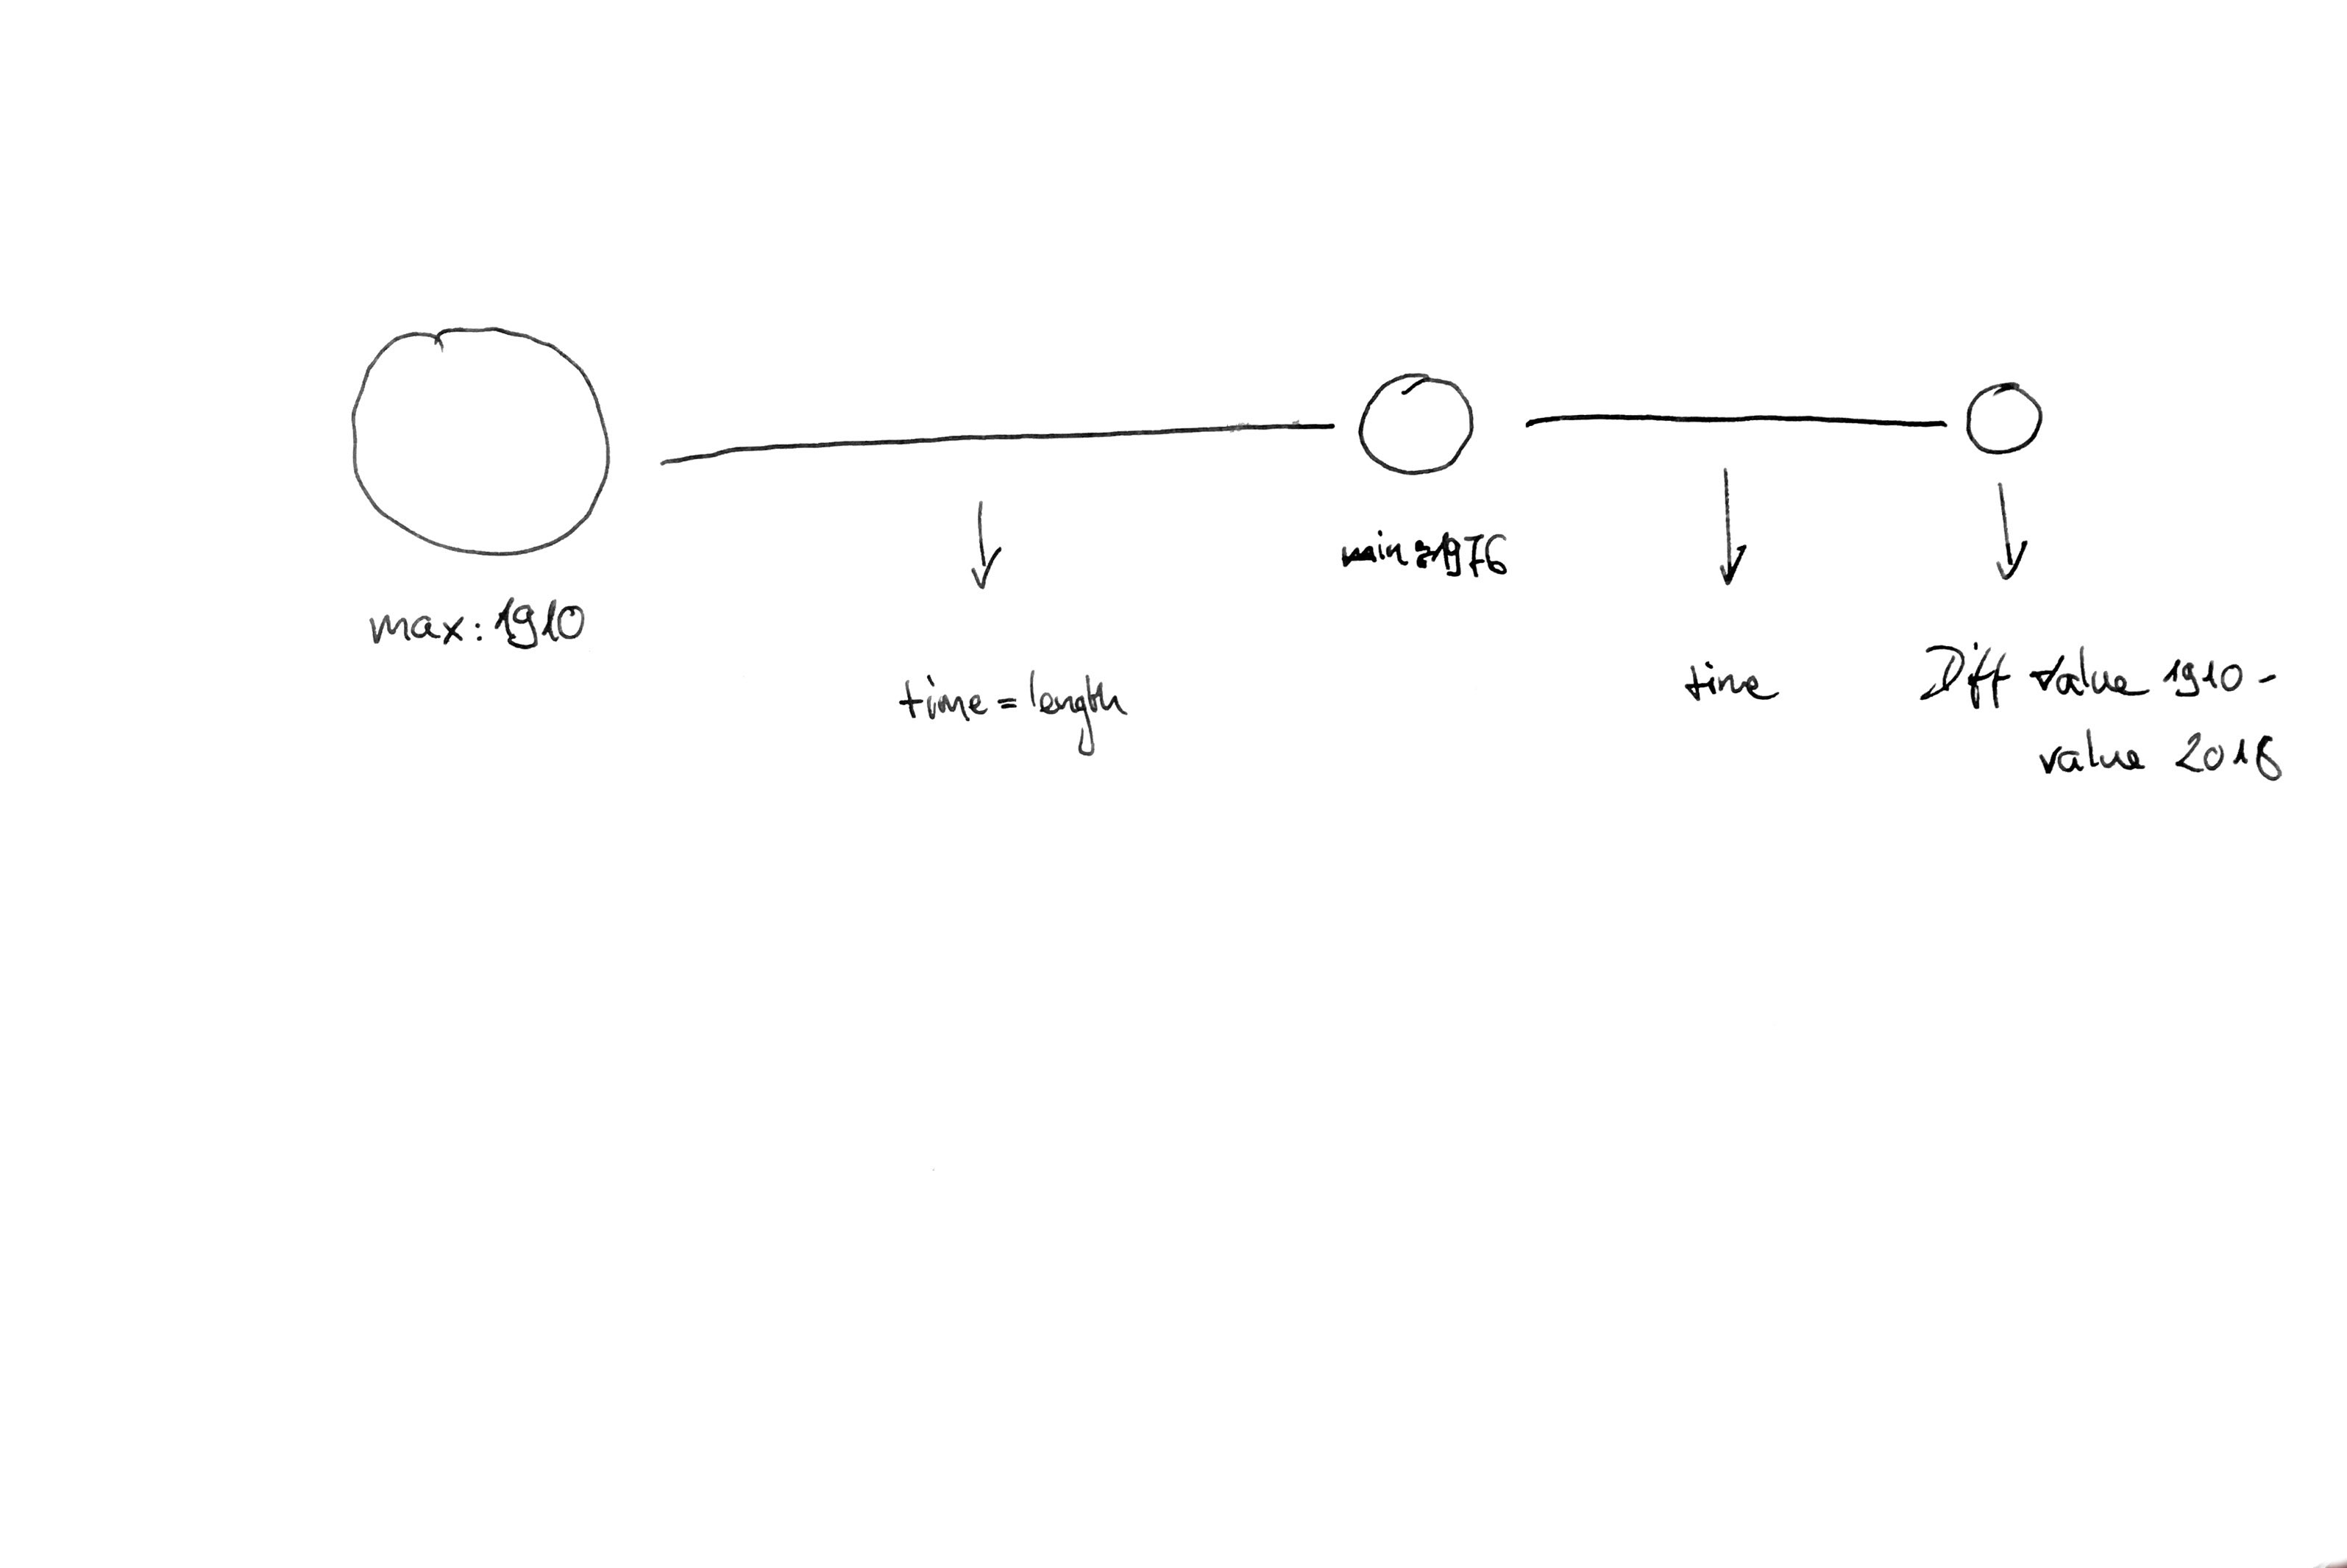 max: 1910
time = length
min 1976
time
Diff value 1910 -
value 2018